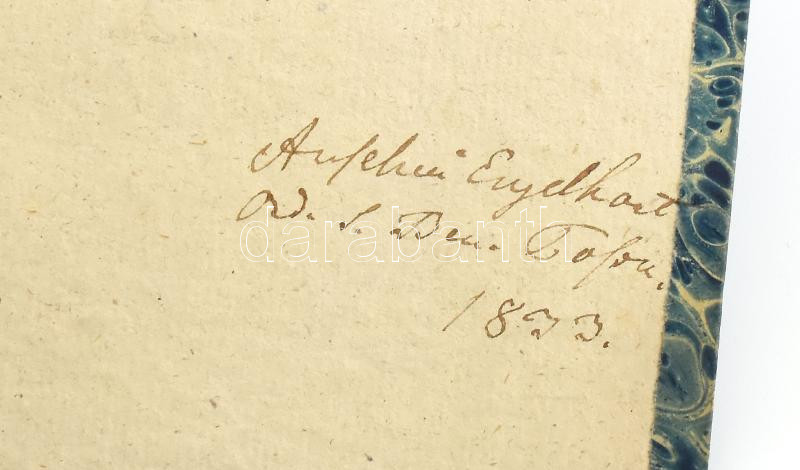 Anselmi Engelhart
Ord. S. Ben.
darabanth
1833.